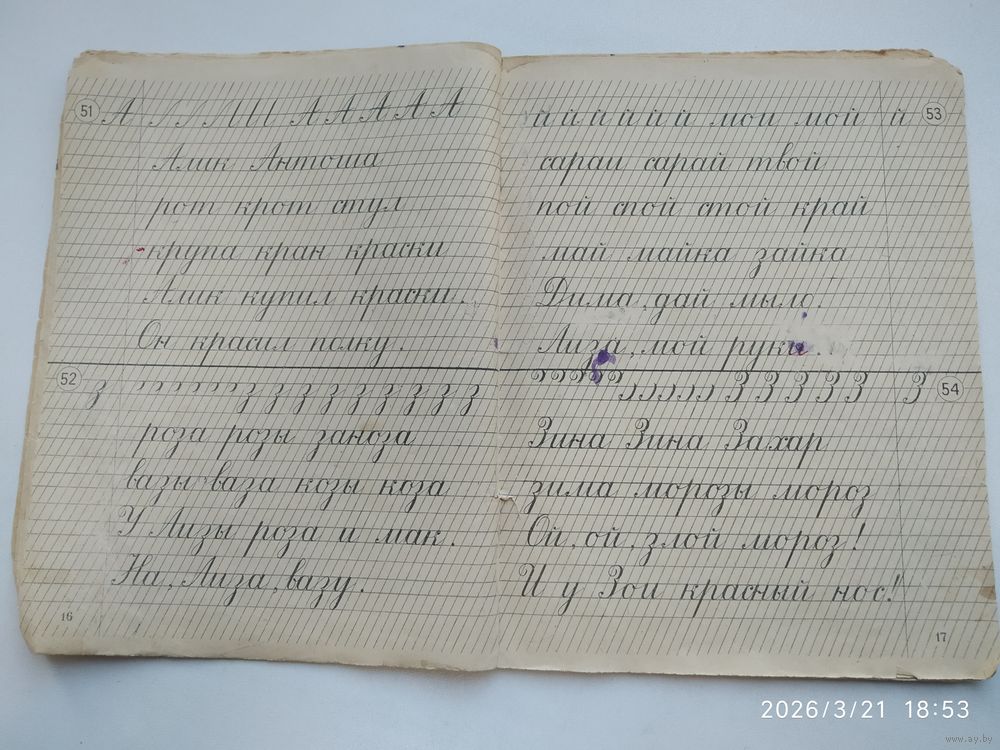 51 А А А А А А
Алик Антоша
рот крот стул
крупа кран краски
Алик купил краски.
Он красил полку.
52 з з з з з з з з з з
роза розы заноза
вазы ваза козы коза
У Лизы роза и мак.
На, Лиза, вазу.
16
й й й й й й мои мой й 53
сараи сарай твой
пой спой стой край
май майка зайка
Дима, дай мыло.
Лиза, мой руки.
З З З З З З 54
Зина Зина Захар
зима морозы мороз
Ой, ой, злой мороз!
И у Зои красный нос!
17
2026/3/21 18:53
www.ay.by